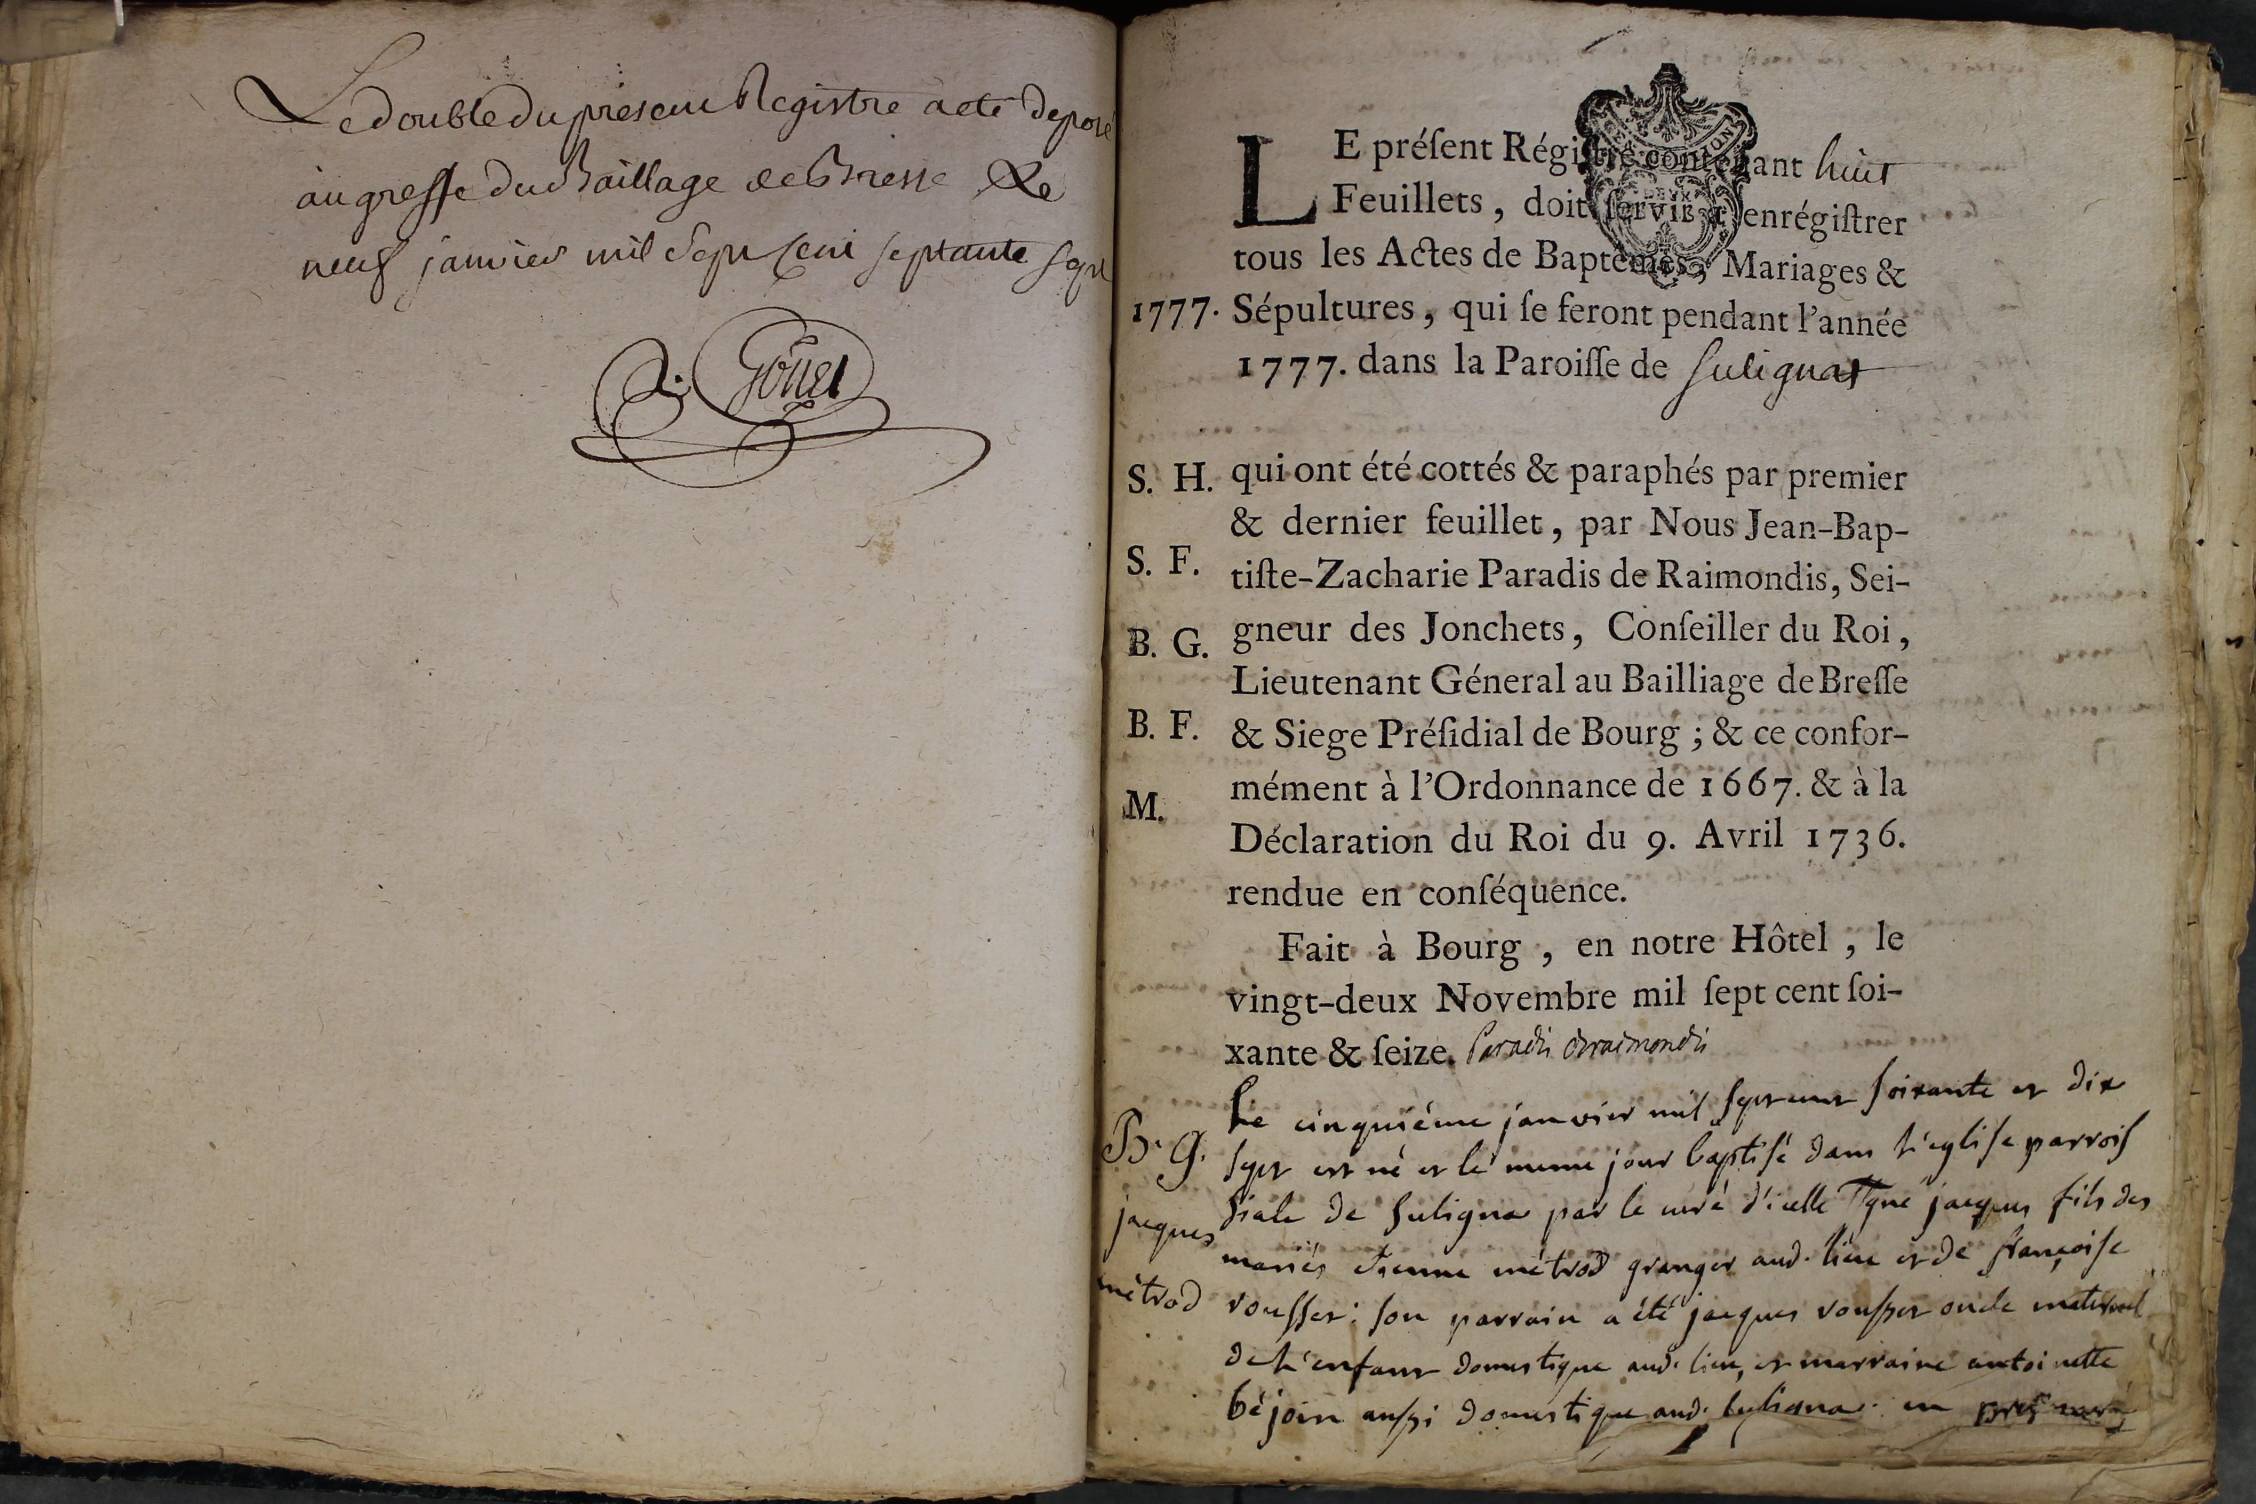 Le double du present Registre a eté deposé
au greffe du Baillage de Bresse Le
neuf janvier mil sept cent septante sept
LE préſent Régiſtre contenant huit
Feuillets, doit ſervir à enrégiſtrer
tous les Actes de Baptêmes, Mariages &
1777. Sépultures, qui ſe feront pendant l'année
1777. dans la Paroiſſe de Sulignat
S. H. qui ont été cottés & paraphés par premier
& dernier feuillet, par Nous Jean-Bap-
S. F. tiſte-Zacharie Paradis de Raimondis, Sei-
B. G. gneur des Jonchets, Conſeiller du Roi,
Lieutenant Géneral au Bailliage de Breſſe
B. F. & Siege Préſidial de Bourg ; & ce confor-
M. mément à l'Ordonnance de 1667. & à la
Déclaration du Roi du 9. Avril 1736.
rendue en conſéquence.
Fait à Bourg, en notre Hôtel, le
vingt-deux Novembre mil ſept cent ſoi-
xante & ſeize. Paradis de raimondis
Le cinquiéme janvier mil sept cent soixante et dix
B. G. sept est né et le meme jour baptisé dans l'eglise parrois
jacques siale de Suligna par le curé d'icelle jacques fils des
mariés etienne métrod granger aud. lieu et de françoise
métrod rousset : son parrain a été jacques rousset oncle maternel
de l'enfant domestique aud. lieu, et marraine antoinette
béjoin aussi domestique aud. suligna. en